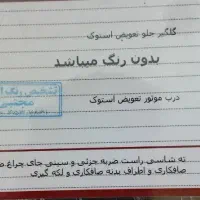 گلگیر جلو تعویض استوک
بدون رنگ میباشد
تشخیص رنگ
درب موتور تعویض استوک
ته شاسی راست ضربه جزئی و سینی جای چراغ
صافکاری و اطراف بدنه صافکاری و لکه گیری